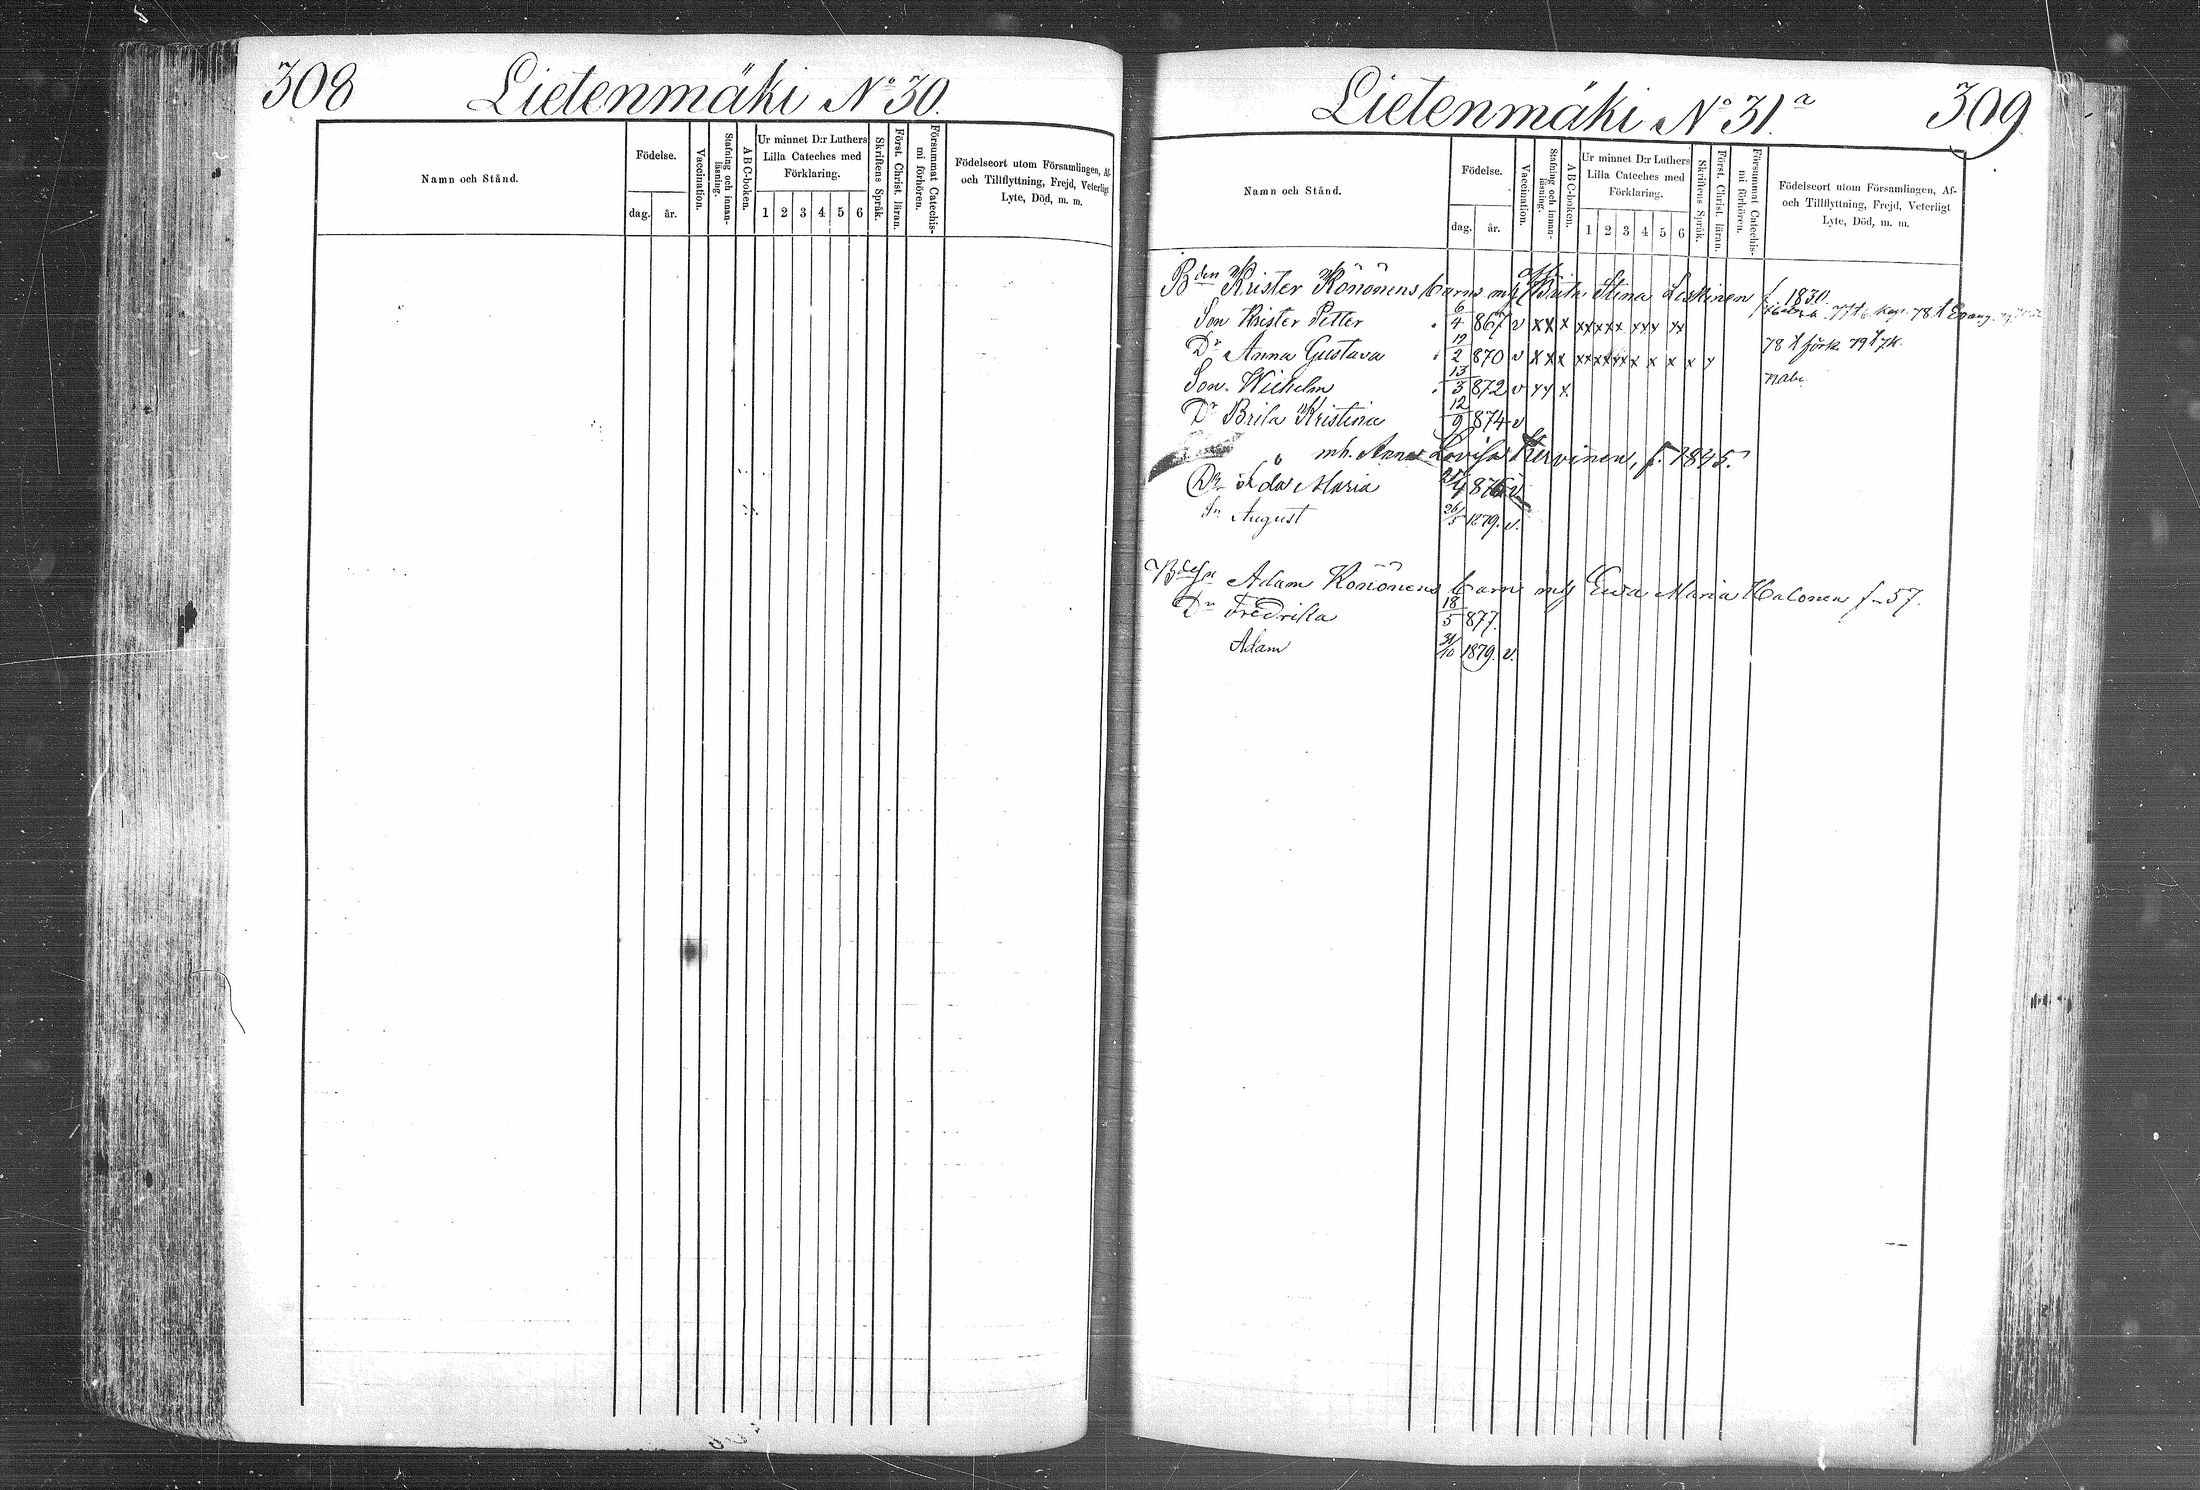 308
Lietenmäki No 30.
Namn och Stånd.
Födelse.
dag. år.
Vaccination.
Stafning och innanläsning.
ABC-boken.
Ur minnet D:r Luthers
Lilla Cateches med
Förklaring.
1 2 3 4 5 6
Skriftens Språk.
Först. Christ. läran.
Försummat Catechismi förhören.
Födelseort utom Församlingen, Af-
och Tillflyttning, Frejd, Veterligt
Lyte, Död, m. m.
Lietenmäki No 31.a
309
Namn och Stånd.
Födelse.
dag. år.
Vaccination.
Stafning och innanläsning.
ABC-boken.
Ur minnet D:r Luthers
Lilla Cateches med
Förklaring.
1 2 3 4 5 6
Skriftens Språk.
Först. Christ. läran.
Försummat Catechismi förhören.
Födelseort utom Församlingen, Af-
och Tillflyttning, Frejd, Veterligt
Lyte, Död, m. m.
Bden Krister Könönens barn m Brita Stina Leskinen f. 1830.
Son Krister Petter 6/4 867 v x x x x x x x x x x x x x
Dr Anna Gustava 12/2 870 v x x x x x x x x x x x x x x 78 förk 79
Son. Wilhelm 13/3 872 v x x x
Dr Brita Kristina 12/9 874 v
mh. Anna Lovisa Kervinen, f. 1845.
Dr Ida Maria 4 876 v
Sn August 26/5 1879. v.
Adam Könönens barn m Ewa Maria Halonen f. 57.
Dr Fredrika 18/5 877.
Adam 31/10 1879. v.